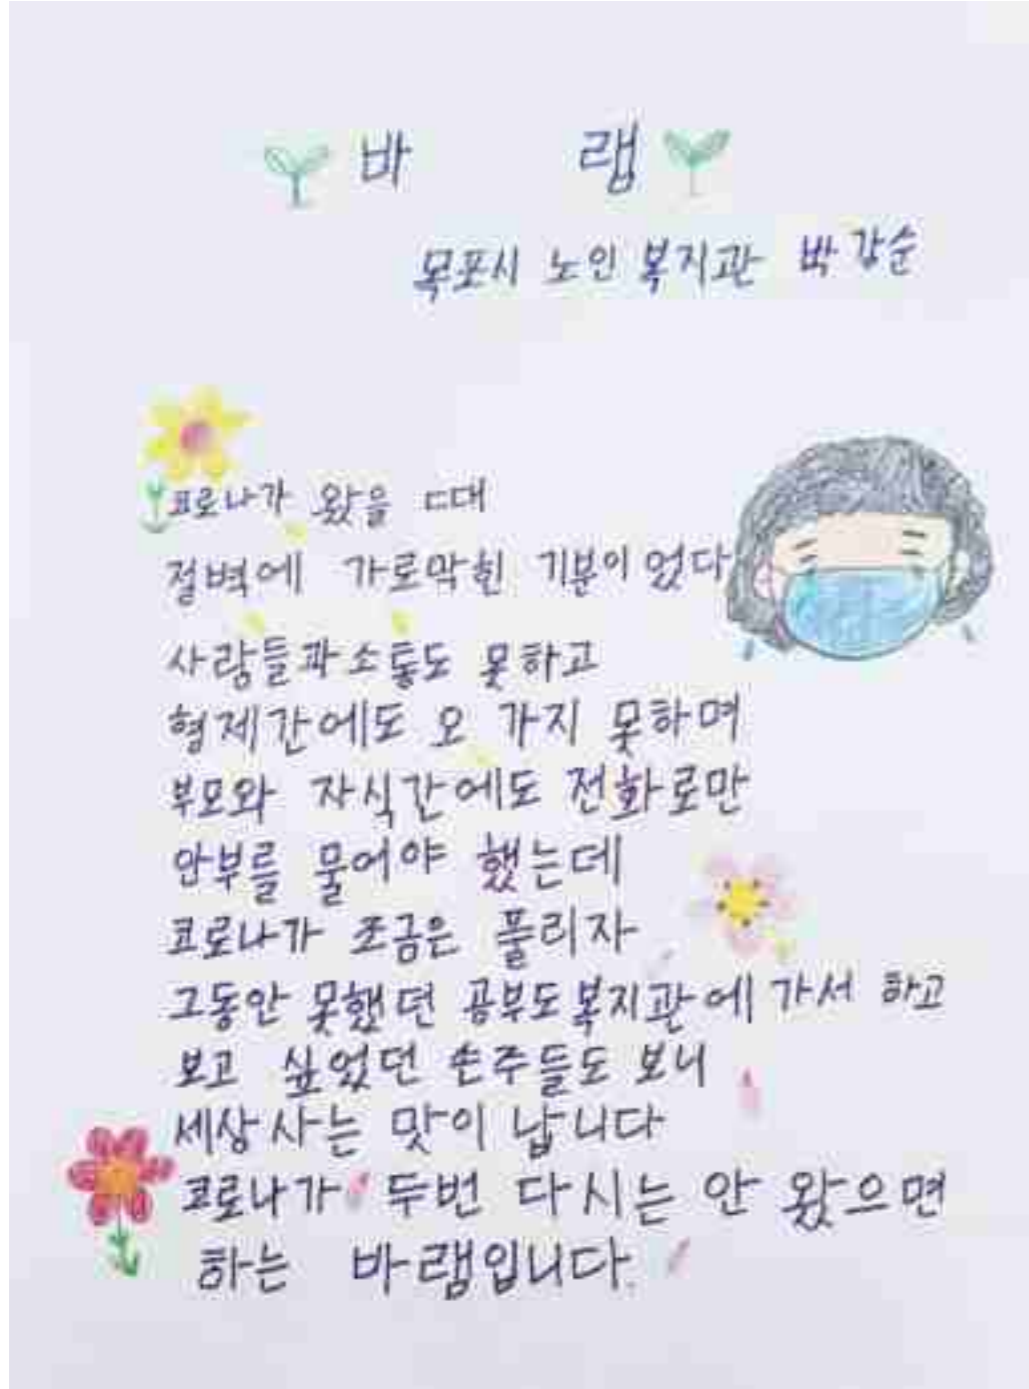 바 램
목포시 노인 복지관 박갑순
코로나가 왔을 때
절벽에 가로막힌 기분이 었다
사람들과 소통도 못하고
형제간에도 오 가지 못하며
부모와 자식간에도 전화로만
안부를 물어야 했는데
코로나가 조금은 풀리자
그동안 못했던 공부도 복지관에 가서 하고
보고 싶었던 손주들도 보니
세상 사는 맛이 납니다
코로나가 두번 다시는 안 왔으면
하는 바램입니다.